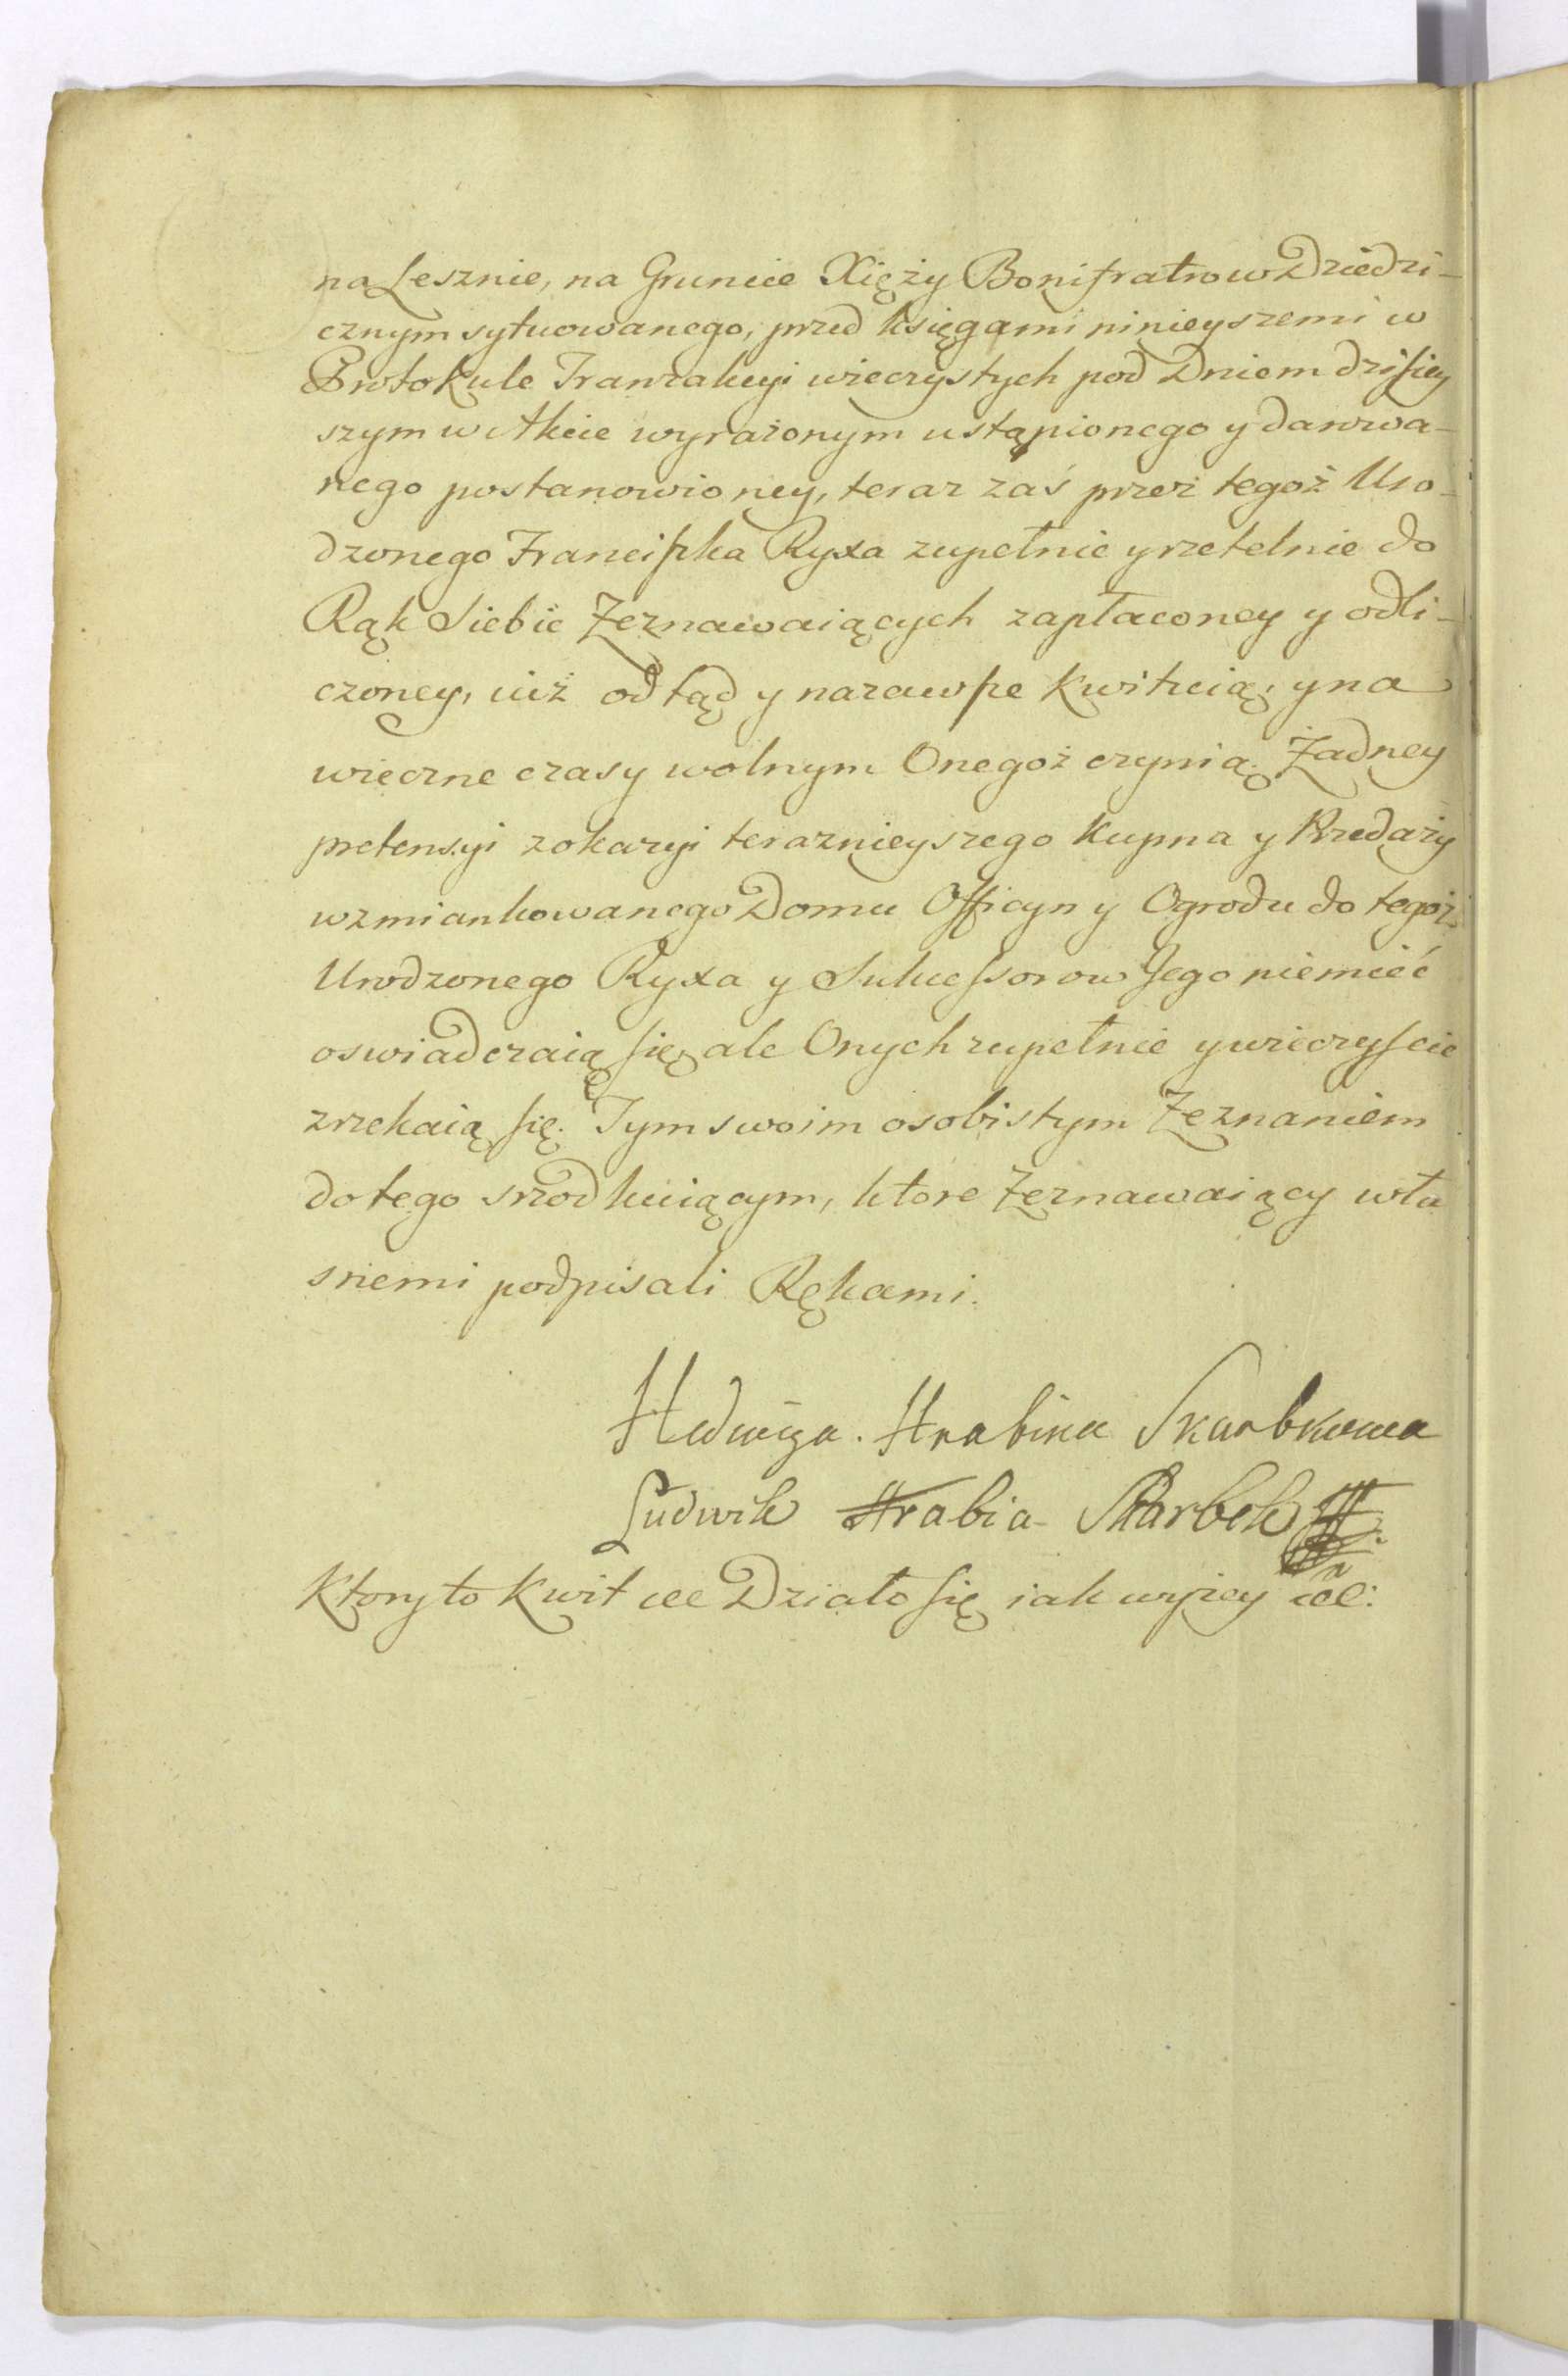 na Lesznie, na Gruncie Xięży Bonifratrow Dziedzi-
cznym sytuowanego, przed księgami ninieyszemi w
Protokule Tranzakcyi wieczystych pod Dniem dzisiey
szym w Akcie wyrażonym ustąpionego y darowa-
nego postanowioney, teraz zaś przez tegoż Uro-
dzonego Franciszka Ryxa zupełnie y rzetelnie do
Rąk Siebie Zeznawaiących zapłaconey y odli-
czoney, iuż odtąd y nazawsze kwituią, y na
wieczne czasy wolnym Onegoż czynią. Żadney
pretensyi z okazyi teraznieyszego Kupna y Przedaży
wzmiankowanego Domu Officyn y Ogrodu do tegoż
Urodzonego Ryxa y Sukcessorow Jego niemieć
oswiadczaią się, ale Onych zupełnie y wieczyscie
zrzekaią się. Tym swoim osobistym Zeznaniem
do tego srzodkuiącym, ktore Zeznawaiący wła
snemi podpisali Rękami.
Hedwiga Hrabina Skarbkowa
Ludwik Hrabia Skarbek
Ktory to Kwit etc Działo się iak wyżey etc: